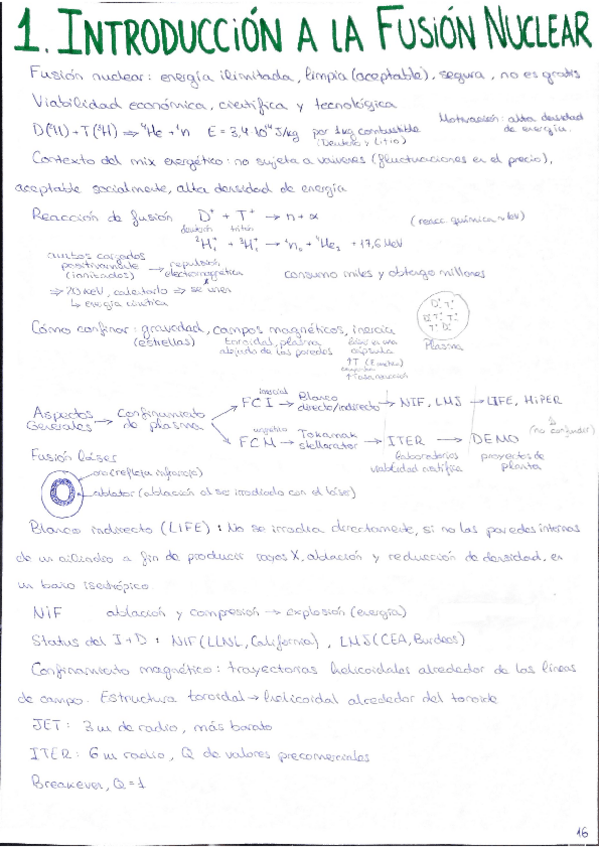 1. INTRODUCCIÓN A LA FUSIÓN NUCLEAR
Fusión nuclear: energía ilimitada, limpia (aceptable), segura, no es gratis
Viabilidad económica, científica y tecnológica
D(²H) + T(³H) ⇒ ⁴He + ¹n E = 3,4 10¹⁴ J/kg por 1kg combustible
(Deuterio y Litio)
Motivación: alta densidad
de energía.
Contexto del mix energético: no sujeta a vaivenes (fluctuaciones en el precio),
aceptable socialmente, alta densidad de energía
Reacción de fusión D⁺ + T⁺ → n + α (reacc química ~ keV)
deuterón tritón
²H₁⁺ + ³H₁⁺ → ¹n₀ + ⁴He₂ + 17,6 MeV
ambos cargados
positivamente → repulsión
(ionizados) electromagnética
consumo miles y obtengo millones
⇒ 20 KeV, calentarlo ⇒ se unen
↳ energía cinética
Cómo confinar: gravedad, campos magnéticos, inercia
(estrellas) toroidal, plasma
alejado de las paredes
cápsula
Plasma
inercial
FCI → Blanco directo/indirecto → NIF, LMJ → LIFE, HiPER
Aspectos Generales → Confinamiento de plasma
(no confundir)
magnético
FCM → Tokamak stellarator → ITER → DEMO
laboratorios viabilidad científica
proyectos de planta
Fusión láser
oro (refleja infrarrojo)
ablator (ablación al ser irradiado con el láser)
Blanco indirecto (LIFE): No se irradia directamente, si no las paredes internas
de un cilindro a fin de producir rayos X, ablación y reducción de densidad, en
un baño isotrópico.
NIF ablación y compresión → explosión (energía)
Status del I+D: NIF (LLNL, California), LMJ (CEA, Burdeos)
Confinamiento magnético: trayectorias helicoidales alrededor de las líneas
de campo. Estructura toroidal → helicoidal alrededor del toroide
JET: 3m de radio, más barato
ITER: 6m radio, Q de valores precomerciales
Breakeven, Q=1
16